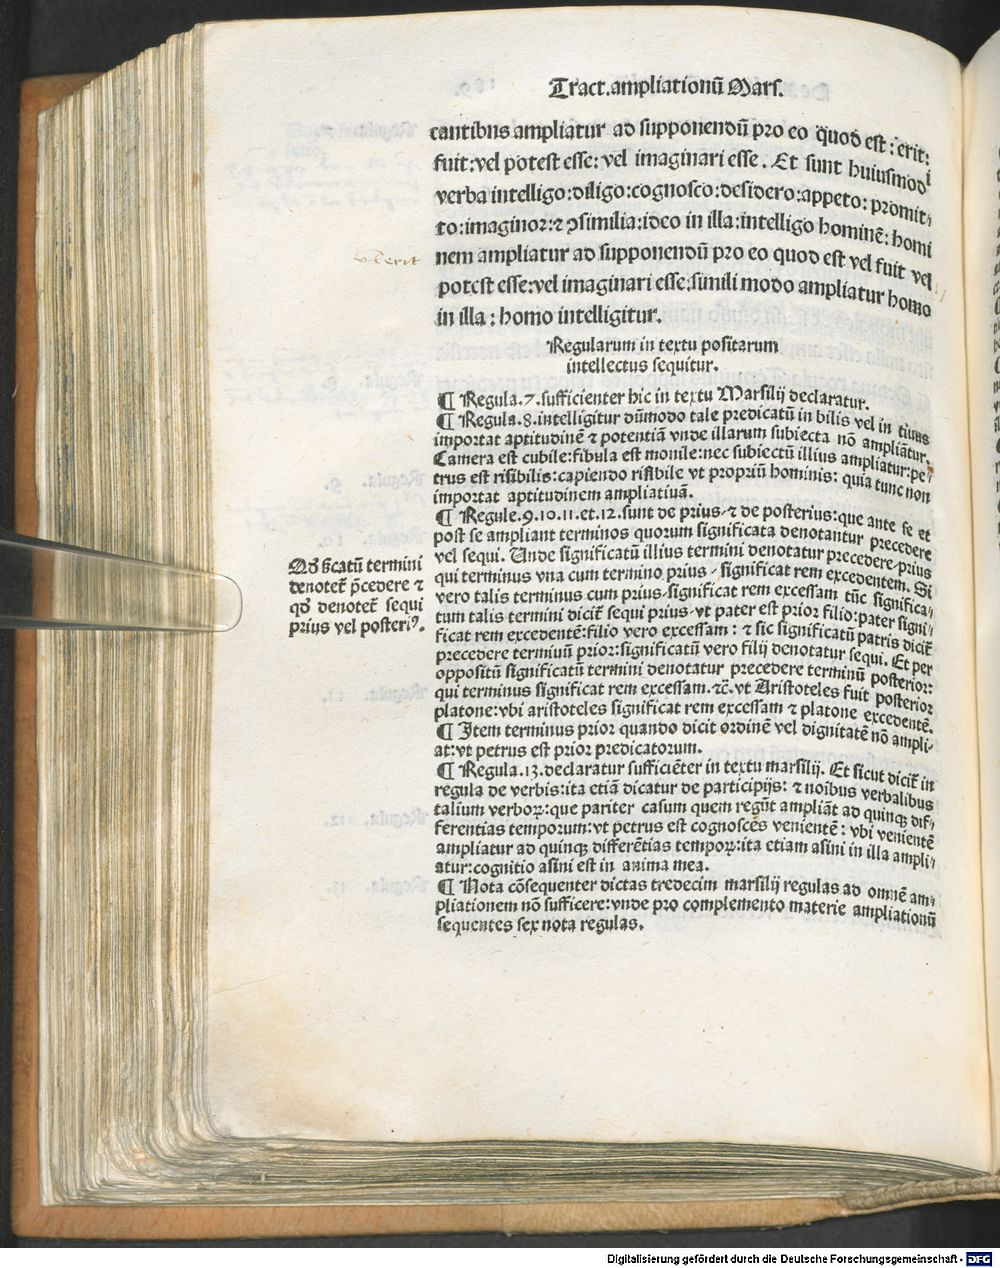 Tract. ampliationū Mars.
cantibus ampliatur ad supponendū pro eo quod est : erit:
fuit: vel potest esse: vel imaginari esse. Et sunt huiusmodi
verba intelligo: diligo: cognosco: desidero: appeto: promit⸗
to: imaginor: ⁊ ꝯsimilia: ideo in illa: intelligo hominē: homi
nem ampliatur ad supponendū pro eo quod est vel fuit vel
potest esse: vel imaginari esse: simili modo ampliatur homo
in illa : homo intelligitur.
Regularum in textu positarum
intellectus sequitur.
¶ Regula .7. sufficienter hic in textu Marsilij declaratur.
¶ Regula .8. intelligitur dūmodo tale predicatū in bilis vel in tiuus
importat aptitudinē ⁊ potentiā vnde illarum subiecta nō ampliātur.
Camera est cubile: fibula est monile: nec subiectū illius ampliatur: pe⸗
trus est risibilis: capiendo risibile vt propriū hominis: quia tunc non
importat aptitudinem ampliatiuā.
¶ Regule .9.10.11. et .12. sunt de prius⸗ ⁊ de posterius: que ante se et
post se ampliant terminos quorum significata denotantur precedere
vel sequi. Unde significatū illius termini denotatur precedere⸗ prius
qui terminus vna cum termino prius⸗ significat rem excedentem. Si
vero talis terminus cum prius⸗ significat rem excessam tūc significa⸗
tum talis termini dicit̄ sequi prius⸗ vt pater est prior filio: pater signi⸗
ficat rem excedentē: filio vero excessam : ⁊ sic significatū patris dicit̄
precedere terminū prior: significatū vero filij denotatur sequi. Et per
oppositū significatū termini denotatur precedere terminū posterior:
qui terminus significat rem excessam. ⁊c̄. vt Aristoteles fuit posterior
platone: vbi aristoteles significat rem excessam ⁊ platone excedentē.
¶ Item terminus prior quando dicit ordinē vel dignitatē nō ampli⸗
at: vt petrus est prior predicatorum.
¶ Regula .13. declaratur sufficiēter in textu marsilij. Et sicut dicit̄ in
regula de verbis: ita etiā dicatur de participijs: ⁊ noībus verbalibus
talium verboꝝ: que pariter casum quem regūt ampliāt ad quinqꝫ dif⸗
ferentias temporum: vt petrus est cognoscēs venientē: vbi venientē
ampliatur ad quinqꝫ differētias tempoꝝ: ita etiam asini in illa ampli⸗
atur: cognitio asini est in anima mea.
¶ Nota cōsequenter dictas tredecim marsilij regulas ad omnē am⸗
pliationem nō sufficere: vnde pro complemento materie ampliationū
sequentes sex nota regulas.
vl erit
Qđ s̄catū termini
denotet̄ p̄cedere ⁊
qđ denotet̄ sequi
prius vel posteriꝰ.
Digitalisierung gefördert durch die Deutsche Forschungsgemeinschaft - DFG